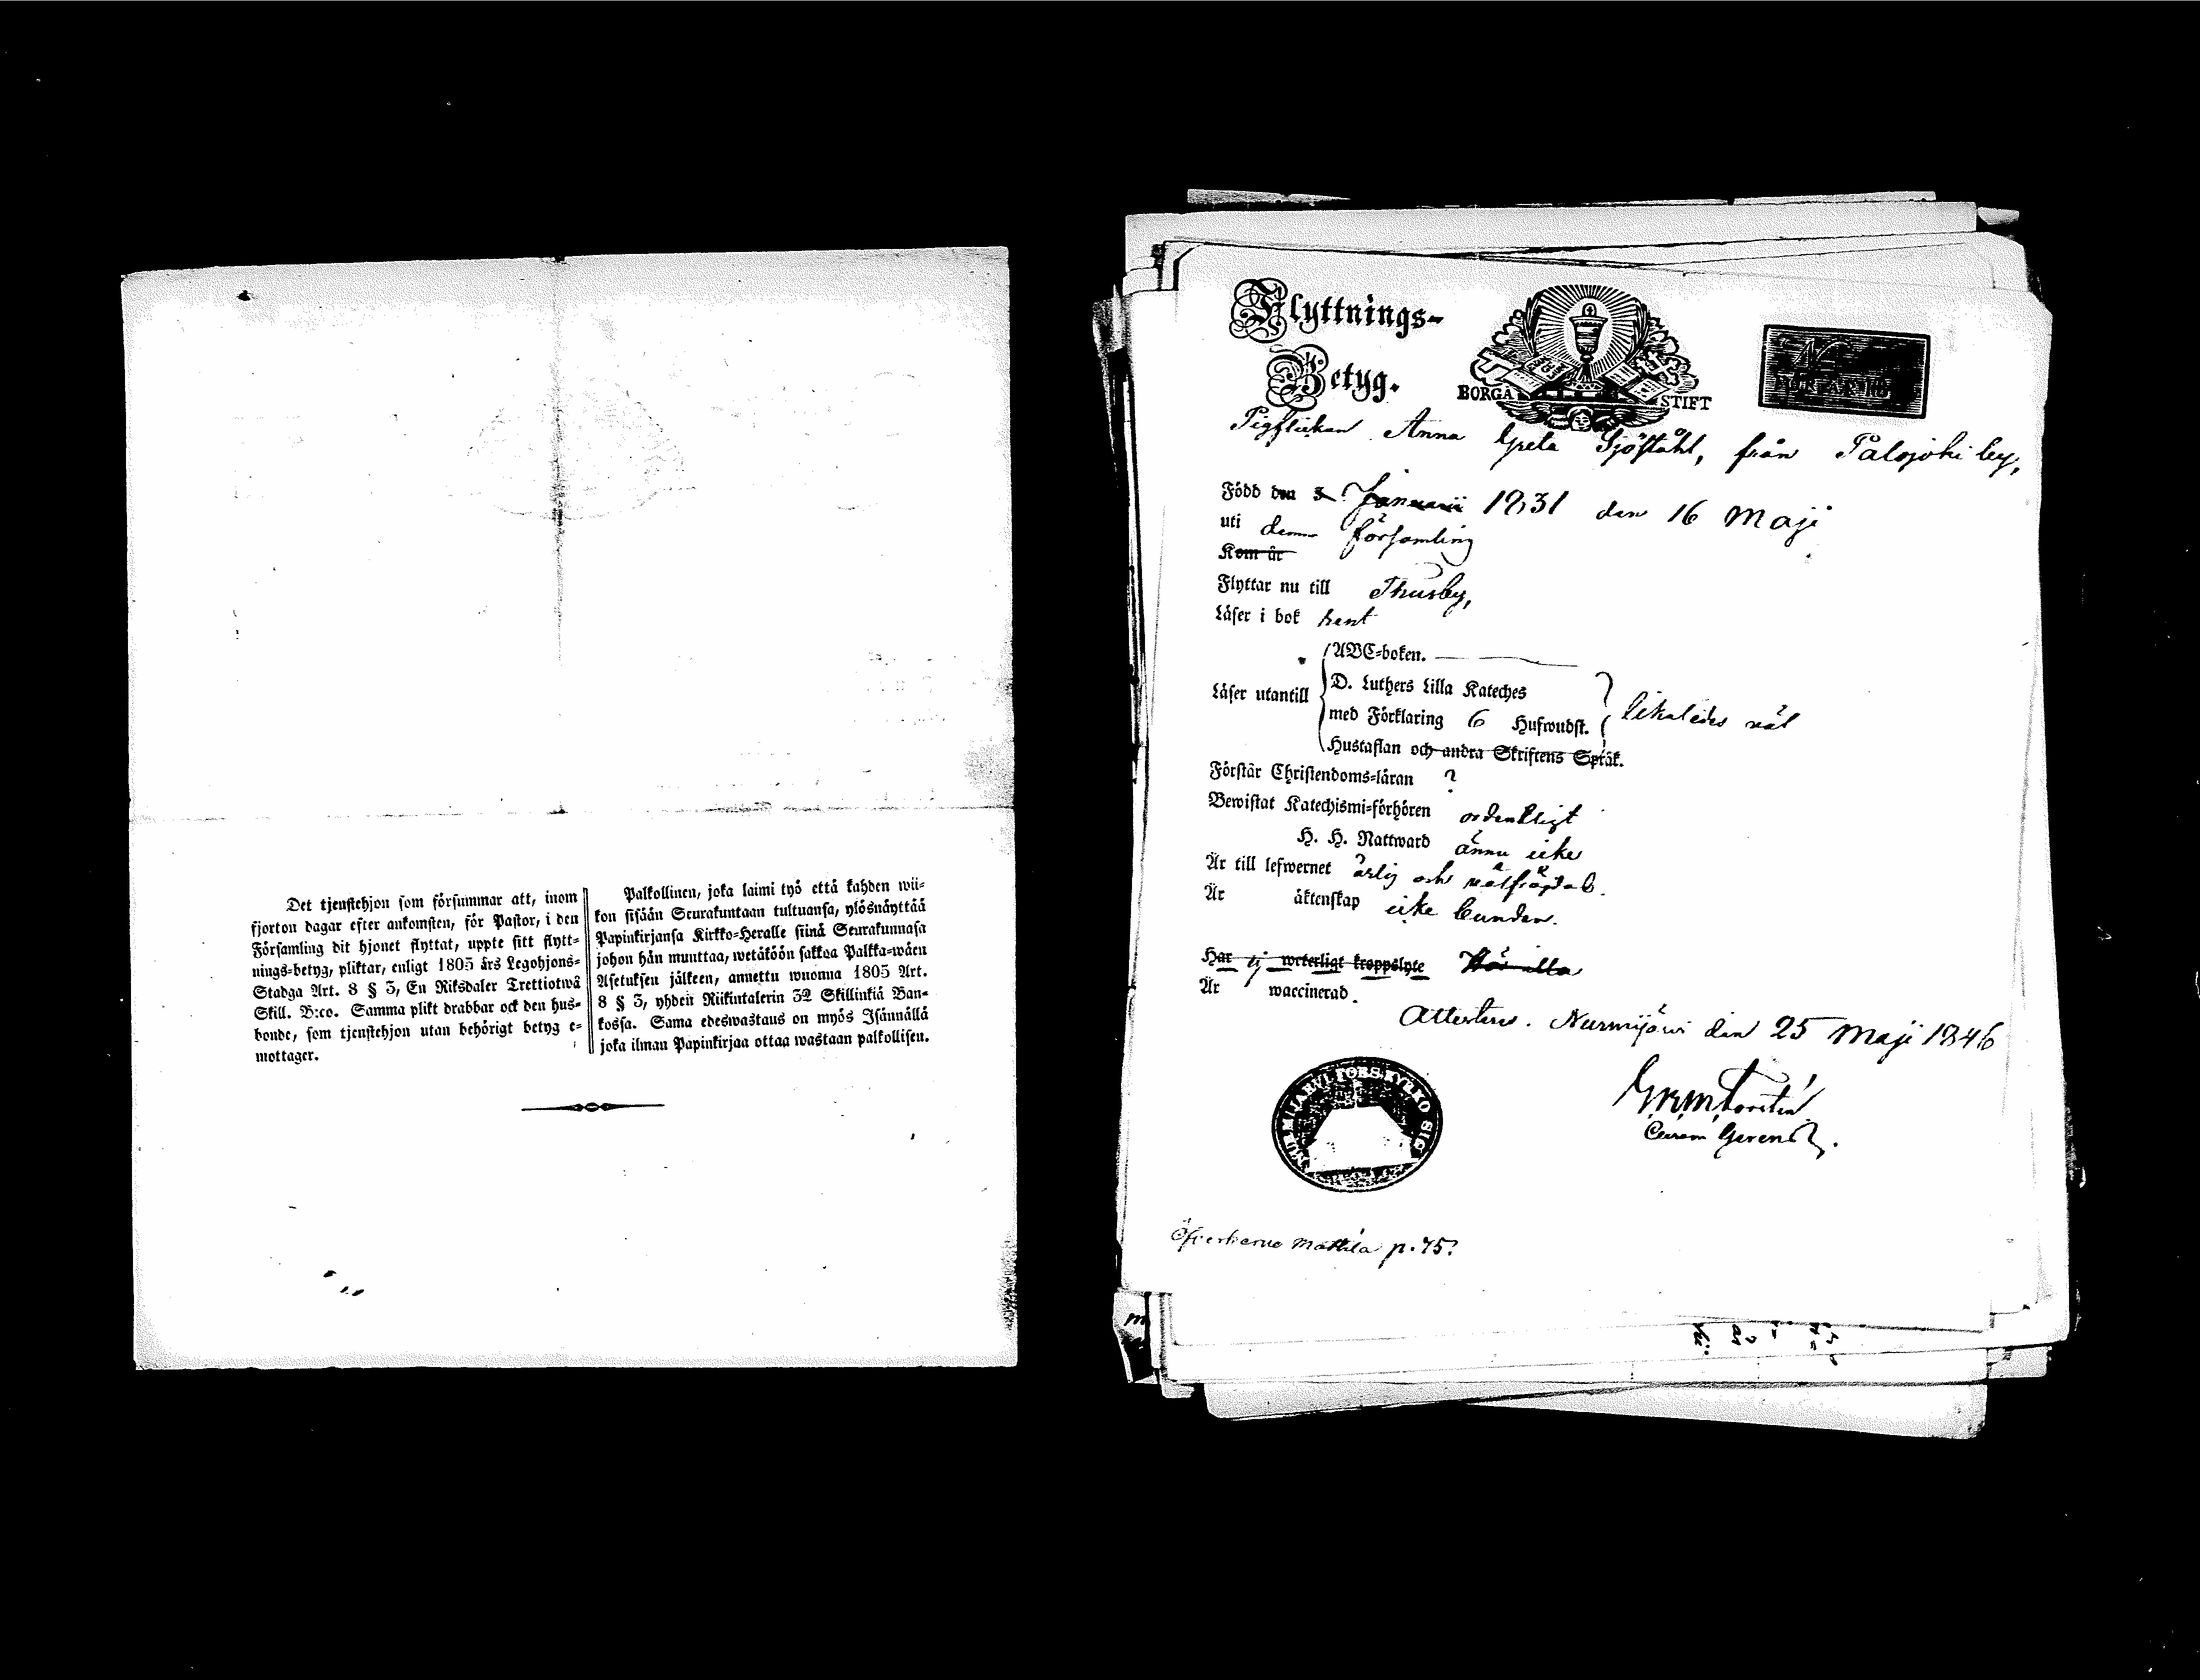 Det tjenstehjon som försummar att, inom
fjorton dagar efter ankomsten, för Pastor, i den
Församling dit hjonet flyttat, uppte sitt flytt-
nings-betyg, pliktar, enligt 1805 års Legohjons-
Stadga Art. 8 § 3, En Riksdaler Trettiotwå
Skill. B:co. Samma plikt drabbar ock den hus-
bonde, som tjenstehjon utan behörigt betyg e-
mottager.
Palkollinen, joka laimi työ että kahden wii-
kon sisään Seurakuntaan tultuansa, ylösnäyttää
Papinkirjansa Kirkko-Heralle siinä Seurakunnasa
johon hän muuttaa, wetäköön sakkaa Palkka-wäen
Asetuksen jälkeen, annettu wuonna 1805 Art.
8 § 3, yhden Riikintalerin 32 Skillinkiä Ban-
kossa. Sama edeswastaus on myös Isännällä
joka ilman Papinkirjaa ottaa wastaan palkollisen.
Flyttnings-
Betyg.
BORGÅ STIFT
Pigflickan Anna Greta Sjöståhl, från Palojoki by,
Född den 3 Januarii 1831 den 16 Maji
uti denna församling
Kom år
Flyttar nu till Thusby,
Läser i bok rent
ABC-boken.
Läser utantill
D. Luthers Lilla Kateches
med Förklaring 6 Hufwudst.
likaledes väl
Hustaflan och andra Skriftens Språk.
Förstår Christendoms-läran ?
Bewistat Katechismi-förhören ordentligt
H. H. Nattward ännu icke
Är till lefwernet ärlig och välfrägdad.
Är äktenskap icke bunden.
Har ej weterligt kroppslyte
Är waccinerad.
Attesteras. Nurmijärvi den 25 Maji 1846
Mattila p. 75?